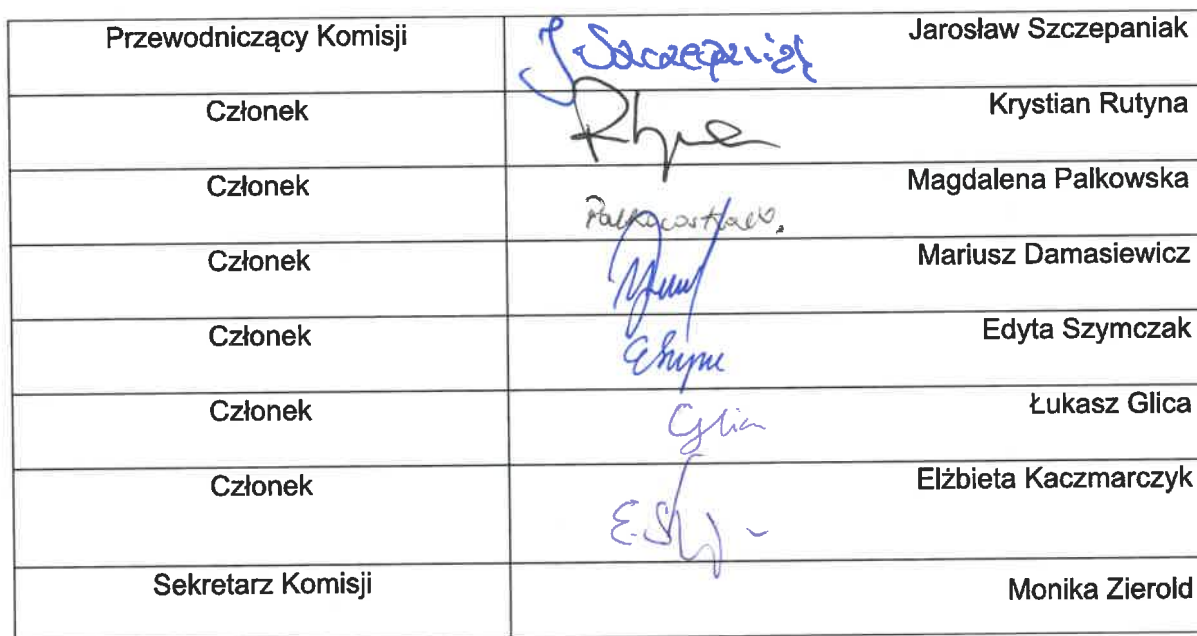 Przewodniczący Komisji J Szczepaniak Jarosław Szczepaniak
Członek Krystian Rutyna
Członek Palkowska Magdalena Palkowska
Członek Mariusz Damasiewicz
Członek Edyta Szymczak
Członek Glica Łukasz Glica
Członek Elżbieta Kaczmarczyk
Sekretarz Komisji Monika Zierold